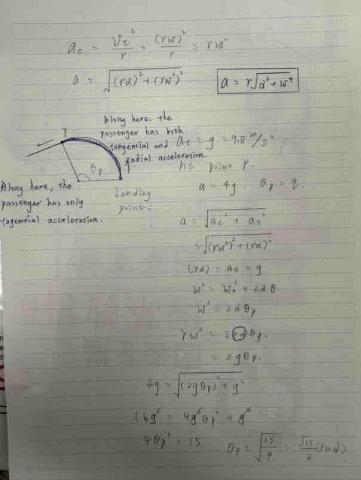 a_c = v_t²/r = (rω)²/r = rω²
a = √((rα)² + (rω²)²)
a = r√(α² + ω⁴)
Along here, the
passenger has both
tangential and
radial acceleration.
P
θp
Along here, the
passenger has only
tangential acceleration.
Loading
point.
= g = 9.8 m/s²
At point P.
a = 4g
a = √(a_c² + a_t²)
= √((rω²)² + (rα)²)
(rα) = a_t = g
ω² = ω₀² + 2αθ
ω² = 2αθp
rω² = 2(rα)θp.
= 2gθp.
4g = √((2gθp)² + g²)
16g² = 4g²θp² + g²
4θp² = 15
θp = √(15/4) = √15/2 (rad)